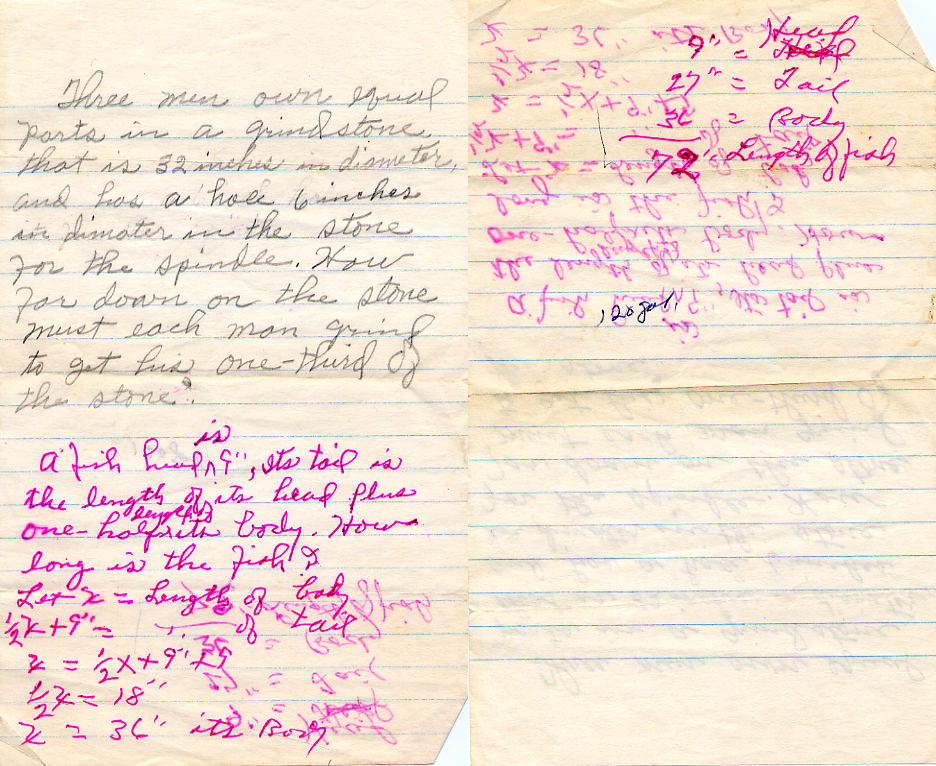 Three men own equal
parts in a grindstone
that is 32 inches in diameter,
and has a hole 6 inches
in dimater in the stone
for the spindle. How
far down on the stone
must each man grind
to get his one-third of
the stone?
is
A fish head 9", its tail is
the length of its head plus
length
one-half its body. How
long is the fish?
Let x = Length of body
1/2x + 9" = " of tail
x = 1/2x + 9" + 9
1/2x = 18"
x = 36" its Body
Head
9" =
27" = Tail
36 = Body
72 Length of fish
120 gal.